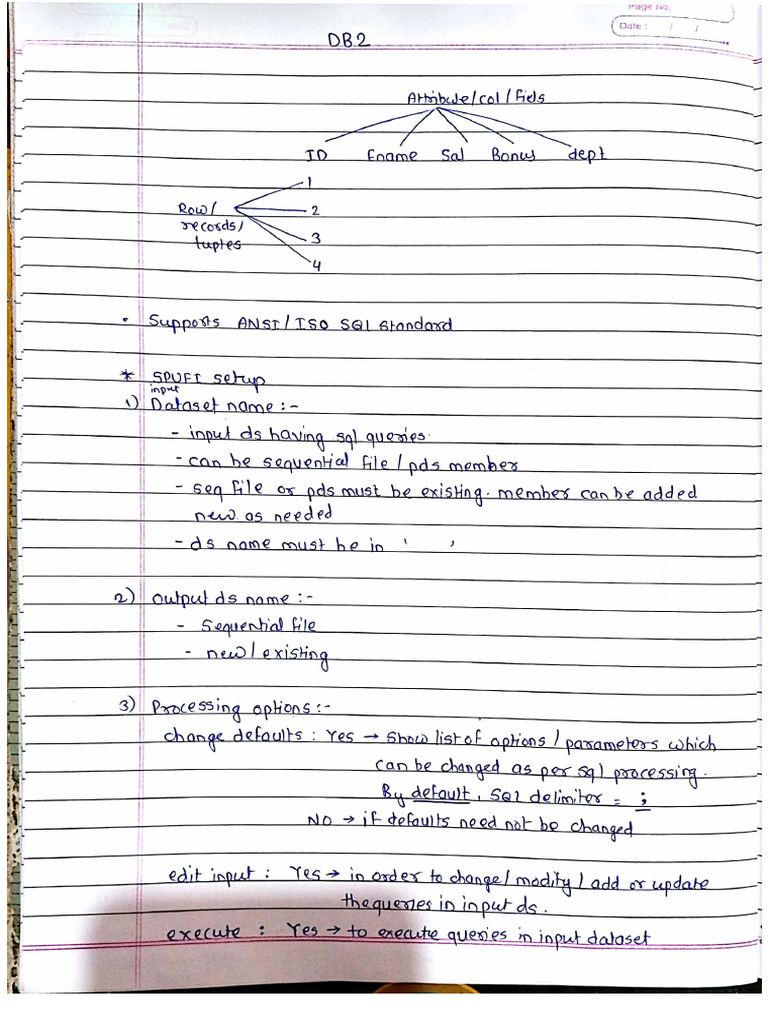 Page No.
Date : / /
DB2
Attribute/col/fiels
ID Ename Sal Bonus dept
1
Row/ 2
records/
tuples 3
4
• Supports ANSI/ISO SQL Standard
* SPUFI setup
input
1) Dataset name :-
- input ds having sql queries.
- can be sequential file / pds member
- seq file or pds must be existing. member can be added
new as needed
- ds name must be in ' '
2) output ds name :-
- Sequential file
- new/existing
3) Processing options :-
change defaults : Yes → Show list of options / parameters which
can be changed as per sql processing.
By default, SQL delimiter = ;
NO → if defaults need not be changed
edit input : Yes → in order to change/modify/add or update
the queries in input ds.
execute : Yes → to execute queries in input dataset